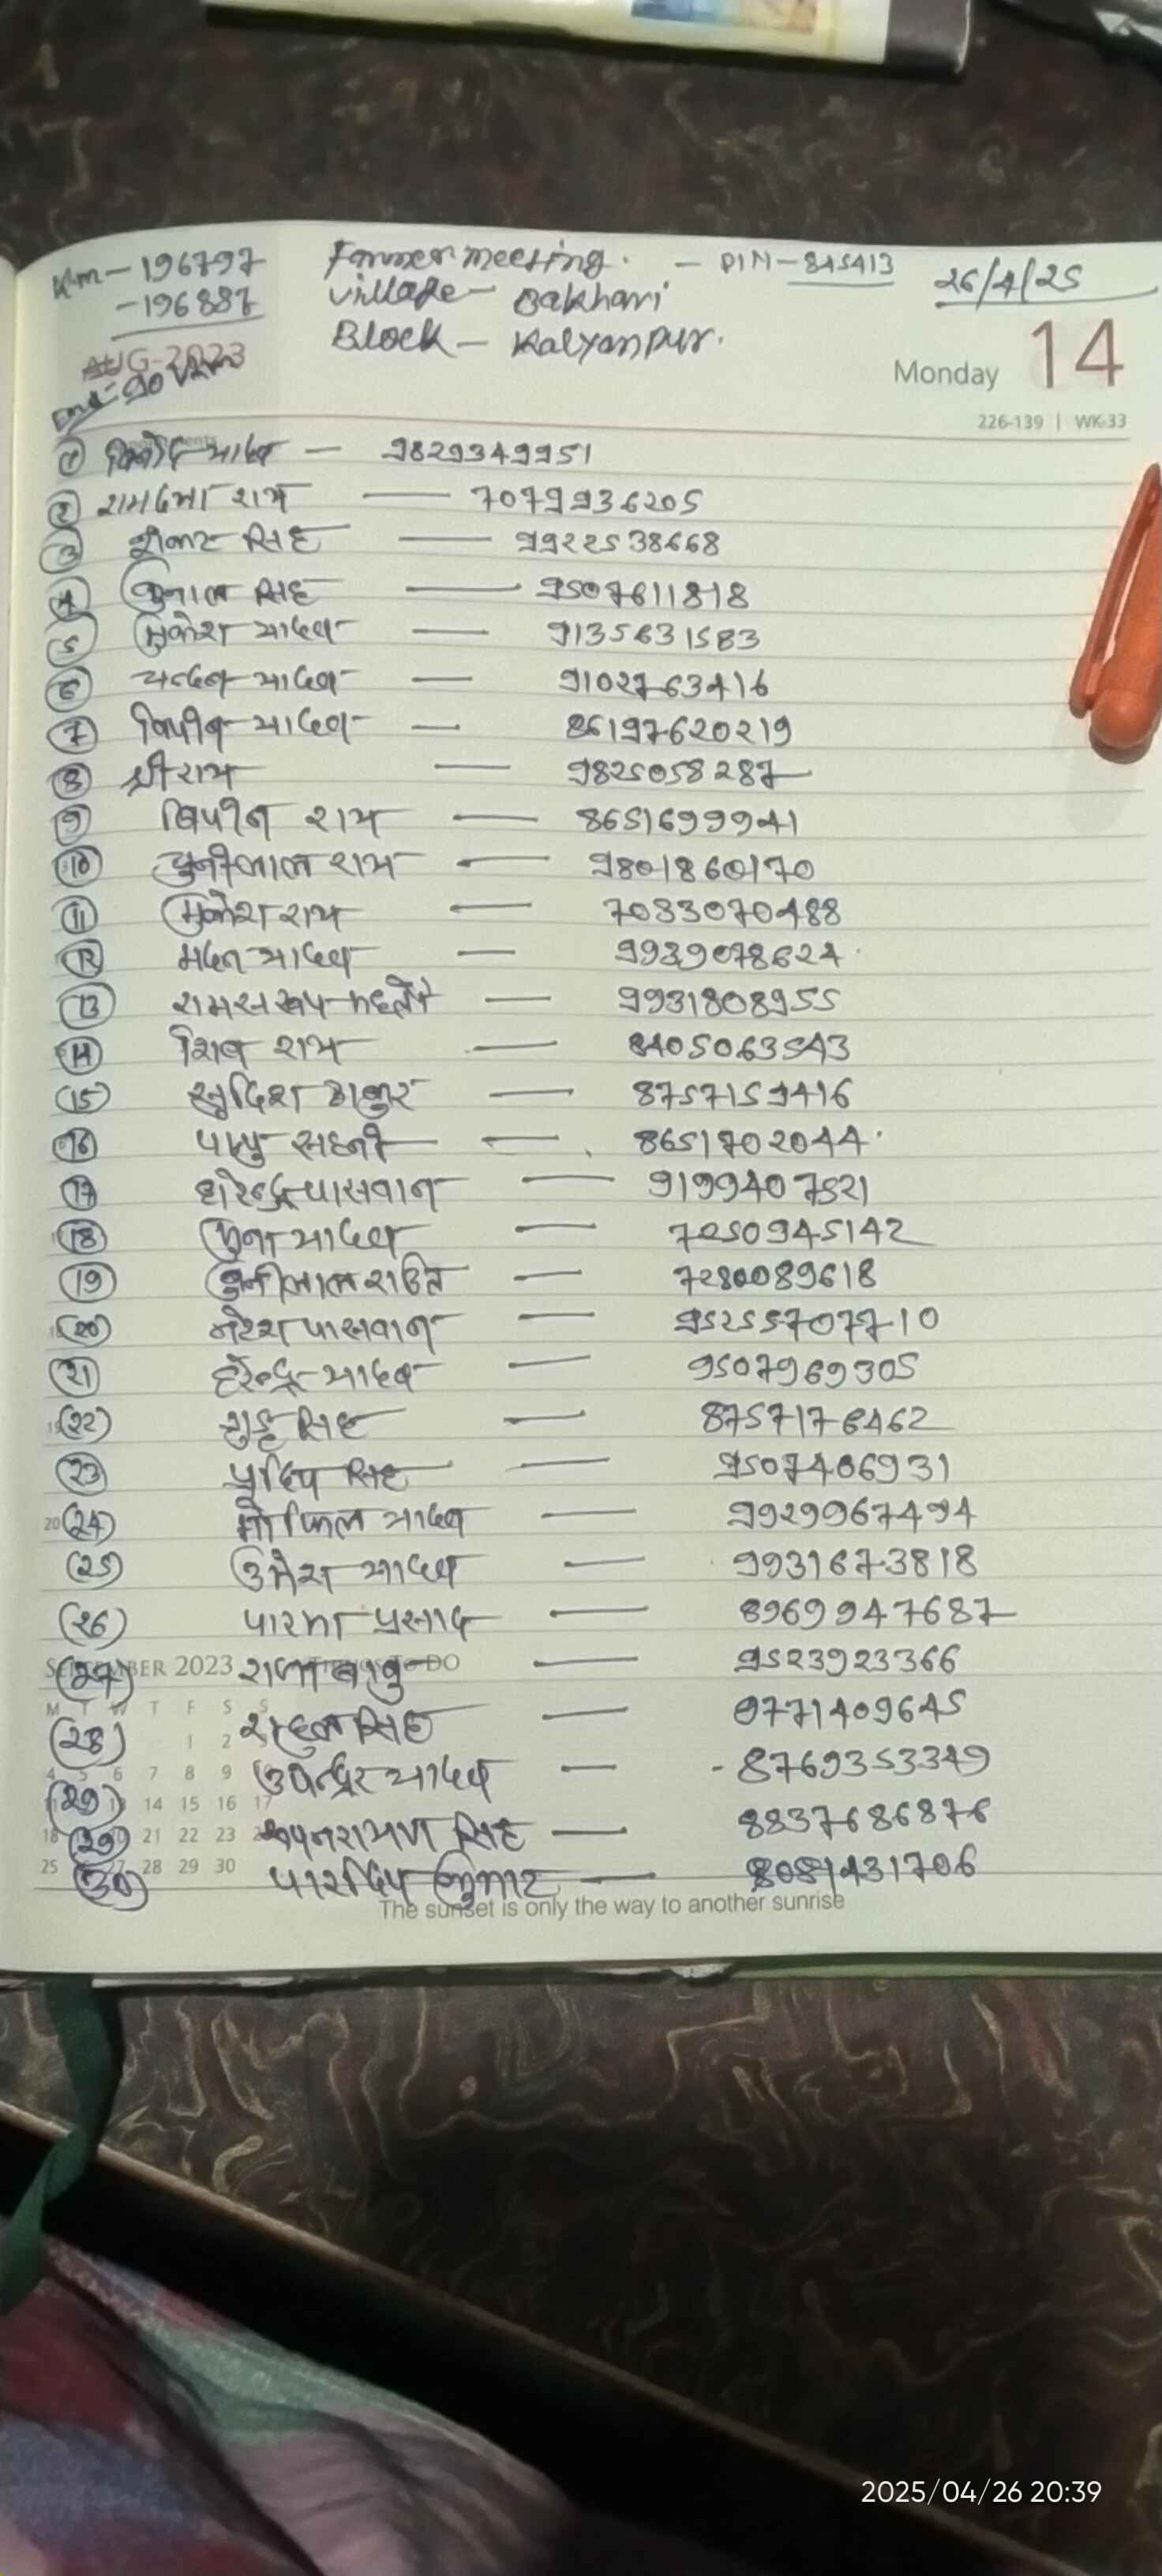 Km-196797 Farmer meeting. - PIN-845413 26/4/25
-196887 village- Bakhari
Block- Kalyanpur.
AUG-2023
Monday 14
226-139 | WK-33
① यादव — 9829349951
② राम — 7079936205
③ शंकर सिंह — 9922538668
④ सिंह — 9507611818
⑤ मुकेश यादव — 9135631583
⑥ चन्दन यादव — 9102763416
⑦ विपीन यादव — 86197620219
⑧ श्री राम — 9825058287
⑨ विपीन राम — 8651699941
⑩ चुनीलाल राम — 9801860170
⑪ मुकेश राम — 7083070488
⑫ मदन यादव — 9939078624
⑬ 9931808955
⑭ शिव राम — 8405063543
(15) सुदिश ठाकुर — 8757159416
⑯ सहनी — 8651702044
⑰ पासवान — 9199407521
⑱ मुना यादव — 7250945142
⑲ राउत — 7280089618
(20) नरेश पासवान — 95255707710
(21) हरेन्द्र यादव — 9507969305
(22) गुड्डू सिंह — 8757176462
(23) प्रदिप सिंह — 9507406931
(24) यादव — 9929967494
(25) उमेश यादव — 9931673818
(26) प्रसाद — 8969947687
SEPTEMBER 2023 THINGS TO DO
(27) राजा बाबु — 9523923366
M T W T F S S
(28) राहुल सिंह — 9771409645
(29) यादव — 8769353349
(29) सिंह — 8837686876
(30) कुमार — 8081431706
The sunset is only the way to another sunrise
2025/04/26 20:39